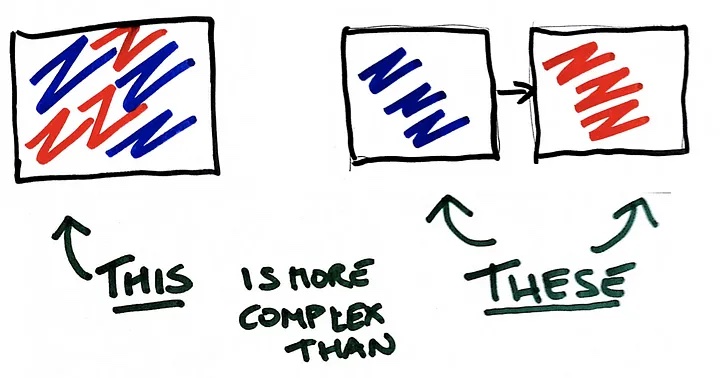 THIS
IS MORE
COMPLEX
THAN
THESE